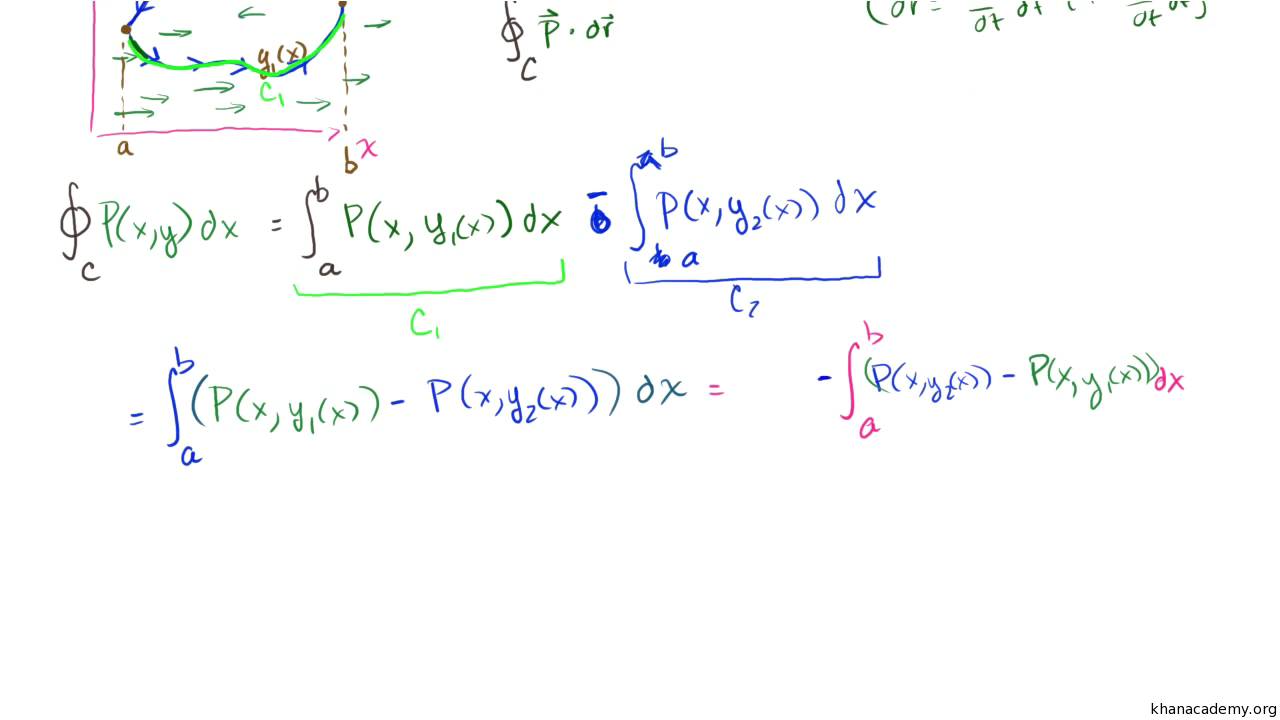 ∮_C P⃗ · dr⃗
y₁(x)
C₁
a
b
x
∮_C P(x,y) dx = ∫_a^b P(x, y₁(x)) dx - ∫_a^b P(x, y₂(x)) dx
C₁
C₂
= ∫_a^b (P(x, y₁(x)) - P(x, y₂(x))) dx = - ∫_a^b (P(x, y₂(x)) - P(x, y₁(x))) dx
khanacademy.org